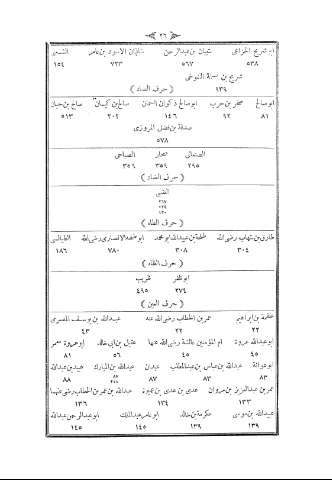 ٢٦
ابو شريح الخزاعى شيبان بن عبدالرحمن شاذان الاسود بن عامر الشعبى
٥٣٨ ٥٦٧ ٧٢٣ ١٥٤
شريح بن التنوخى
( حرف الصاد ) ١٣٩
ابو صالح صخر بن حرب ابو صالح ذكوان السمان صالح بن كيسان صالح بن حيان
٨١ ٩٢ ١٤٦ ٢٠٢ ٥١٣
صدقة بن فضل المروزى
٥٧٨
الصنعانى صحار الصالحى
٢٩٥ ٣٥٩ ٣٥٩
( حرف الضاد )
الضبى
( حرف الطاء )
طارق بن شهاب رضى الله طلحة بن عبيدالله ابو محمد ابو طلحة الانصارى رضى الله الطيالسى
٣٠٤ ٣٠٨ ٧٨٠ ١٨٦
( حرف الظاء )
ابو ظفر غريب
٢٧٤ ٤٩٥
( حرف العين )
علقمة بن ابراهيم عمر بن الخطاب رضى الله عنه عبدالله بن يوسف المصرى
٢٢ ٢٢ ٤٣
ابو عبدالله عروة ام المؤمنين عائشة رضى الله عنها عقيل بن ابى خالد ابو عروة معمر
٤٥ ٤٥ ٥٦ ٨١
ابو عوانة عبدالله بن عباس بن عبدالمطلب عبدان عبدالله بن المبارك عبيد بن عبدالله
٨٣ ٨٣ ٨٧ ٨٨
عمر بن عبدالعزيز بن مروان عدى بن عدى بن عميرة عبدالله بن عمر بن الخطاب رضى عنهما
١٣٣ ١٣٤ ١٣٦
عبيدالله بن موسى عكرمة بن خالد ابو عامر عبدالملك ابو عبدالرحمن عبدالله
١٣٩ ١٣٩ ١٤٥ ١٤٥